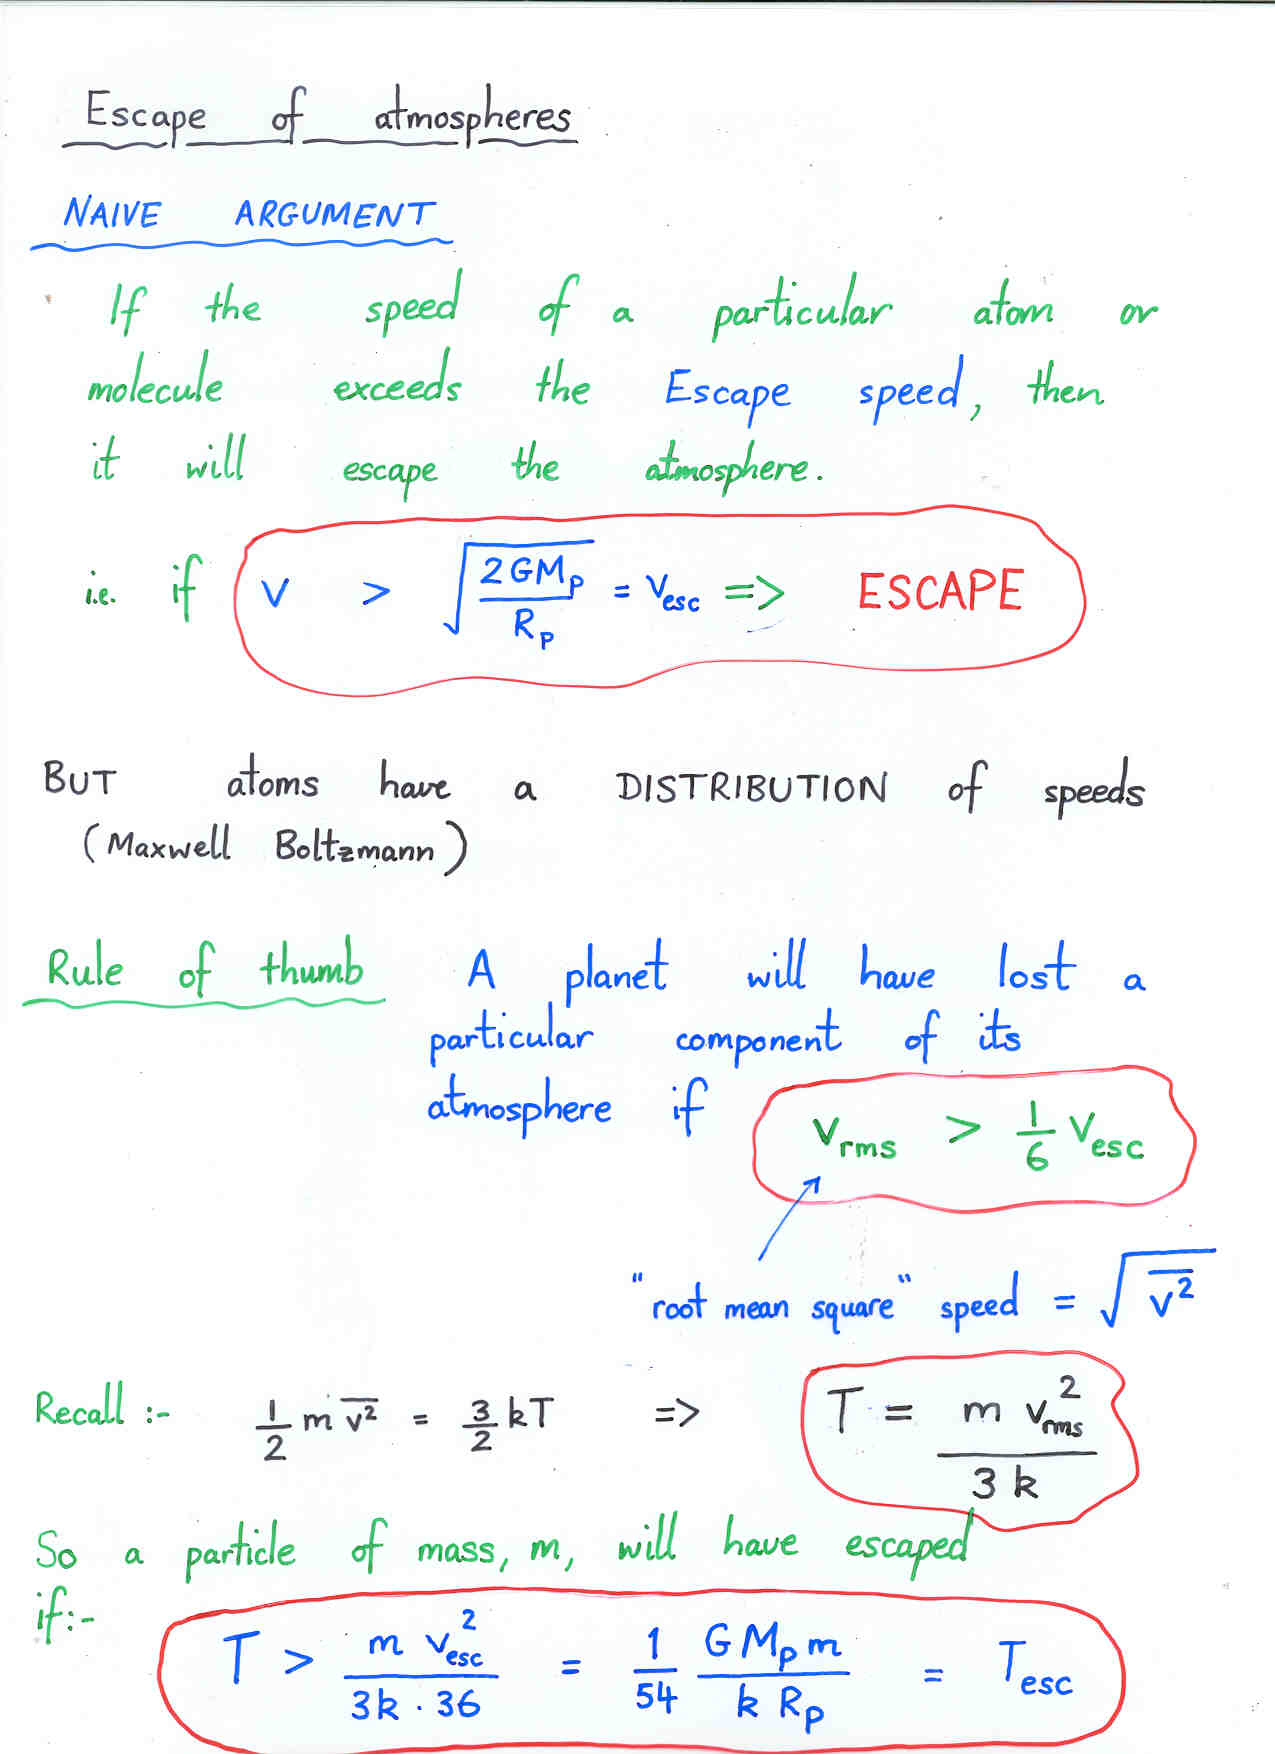 Escape of atmospheres
NAIVE ARGUMENT
If the speed of a particular atom or
molecule exceeds the Escape speed, then
it will escape the atmosphere.
i.e. if v > √(2GMₚ/Rₚ) = v_esc => ESCAPE
BUT atoms have a DISTRIBUTION of speeds
(Maxwell Boltzmann)
Rule of thumb A planet will have lost a
particular component of its
atmosphere if v_rms > 1/6 v_esc
"root mean square" speed = √(v̅²)
Recall :- 1/2 m v̅² = 3/2 kT => T = m v_rms² / 3k
So a particle of mass, m, will have escaped
if:-
T > m v_esc² / 3k · 36 = 1/54 GMₚm / k Rₚ = T_esc